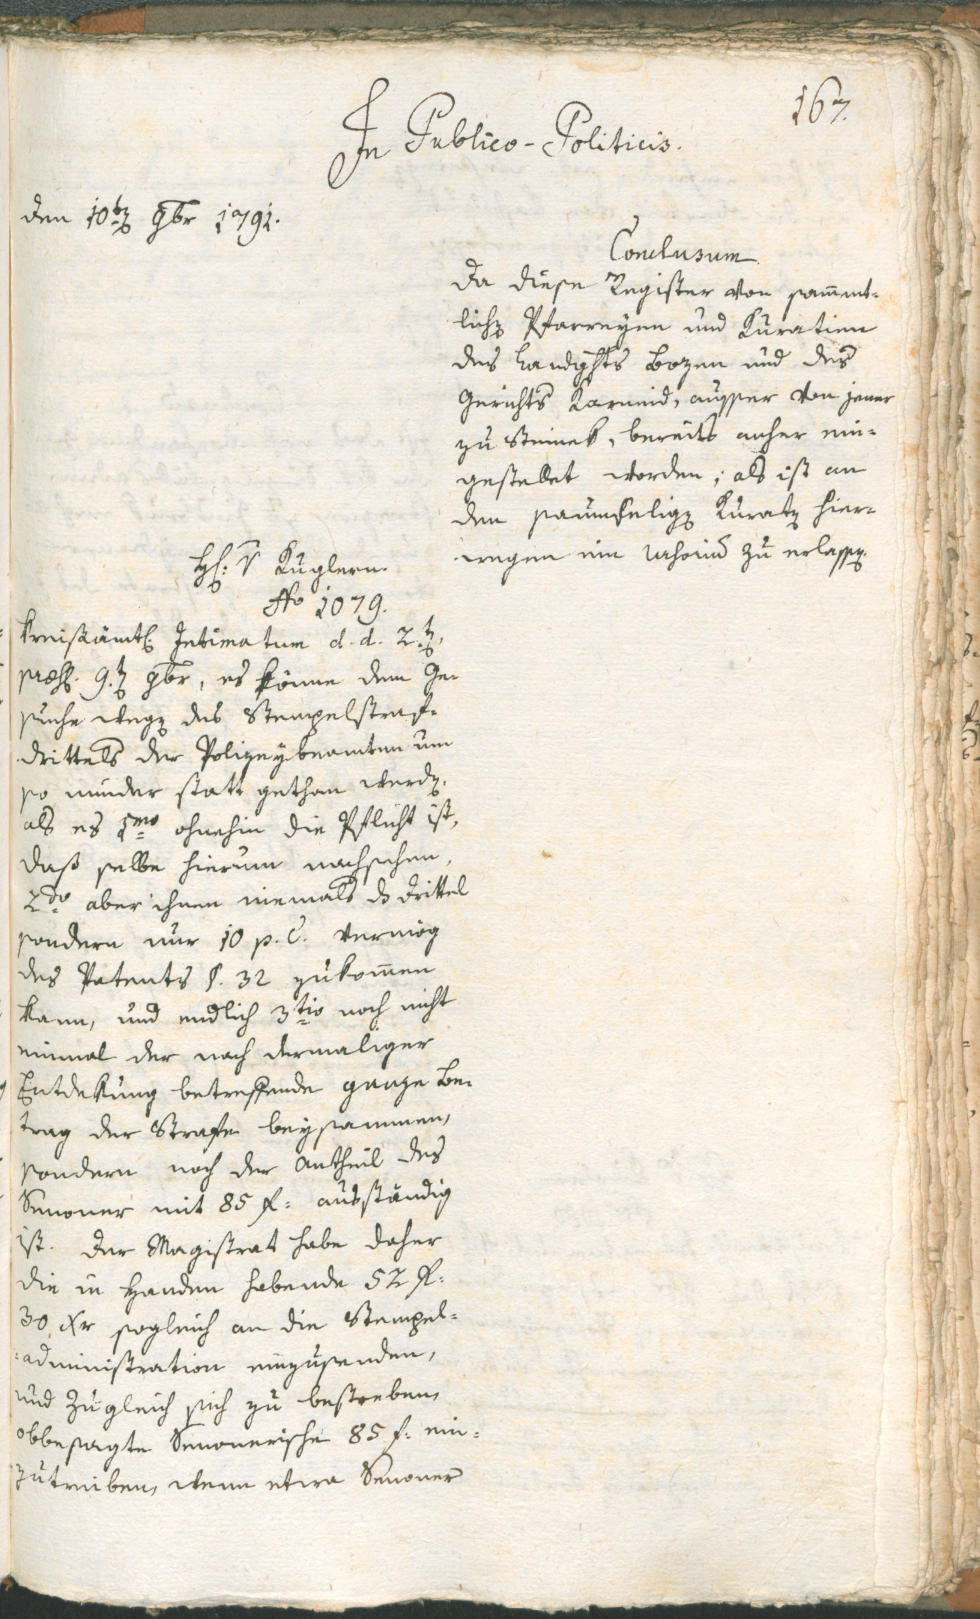 167.
In Publico-Politicis.
den 10t 9br 1791.
Conclusum
Da diese Register von sament-
lich Pfarreyen und Kuratien
des Landgchts Bozen und des
Gerichts Karneid, ausser von jener
zu Steinek, bereits anher ein-
gestellet worden; als ist an
den saumseligen Kuraten hier-
wegen ein zu erlassen
H: v Kuglern.
No 1079.
Kreisämtl Intimatum d. d. 2t,
præs. 9.t 9br, es könne dem Ge-
suche wegen des Stempelstraf-
drittels der Polizeybeamten um
so minder statt gethan werden,
als es 1mo ohnehin die Pflicht ist,
daß selbe hierum nachsehen,
2do aber ihnen niemals ds Drittel
sondern nur 10 p. C. vermög
des Patents §. 32 zukomen
kann, und endlich 3tio noch nicht
einmal der nach dermaliger
Entdekung betreffende ganze Be-
trag der Strafe beysammen,
sondern noch der Antheil des
Simoner mit 85 f: ausständig
ist. Der Magistrat habe daher
die in Handen habende 52 f:
30 Xr sogleich an die Stempel-
administration einzusenden,
und zugleich sich zu bestreben,
obbesagte Simonerische 85 f: ein-
zutreiben, wenn etwa Simoner